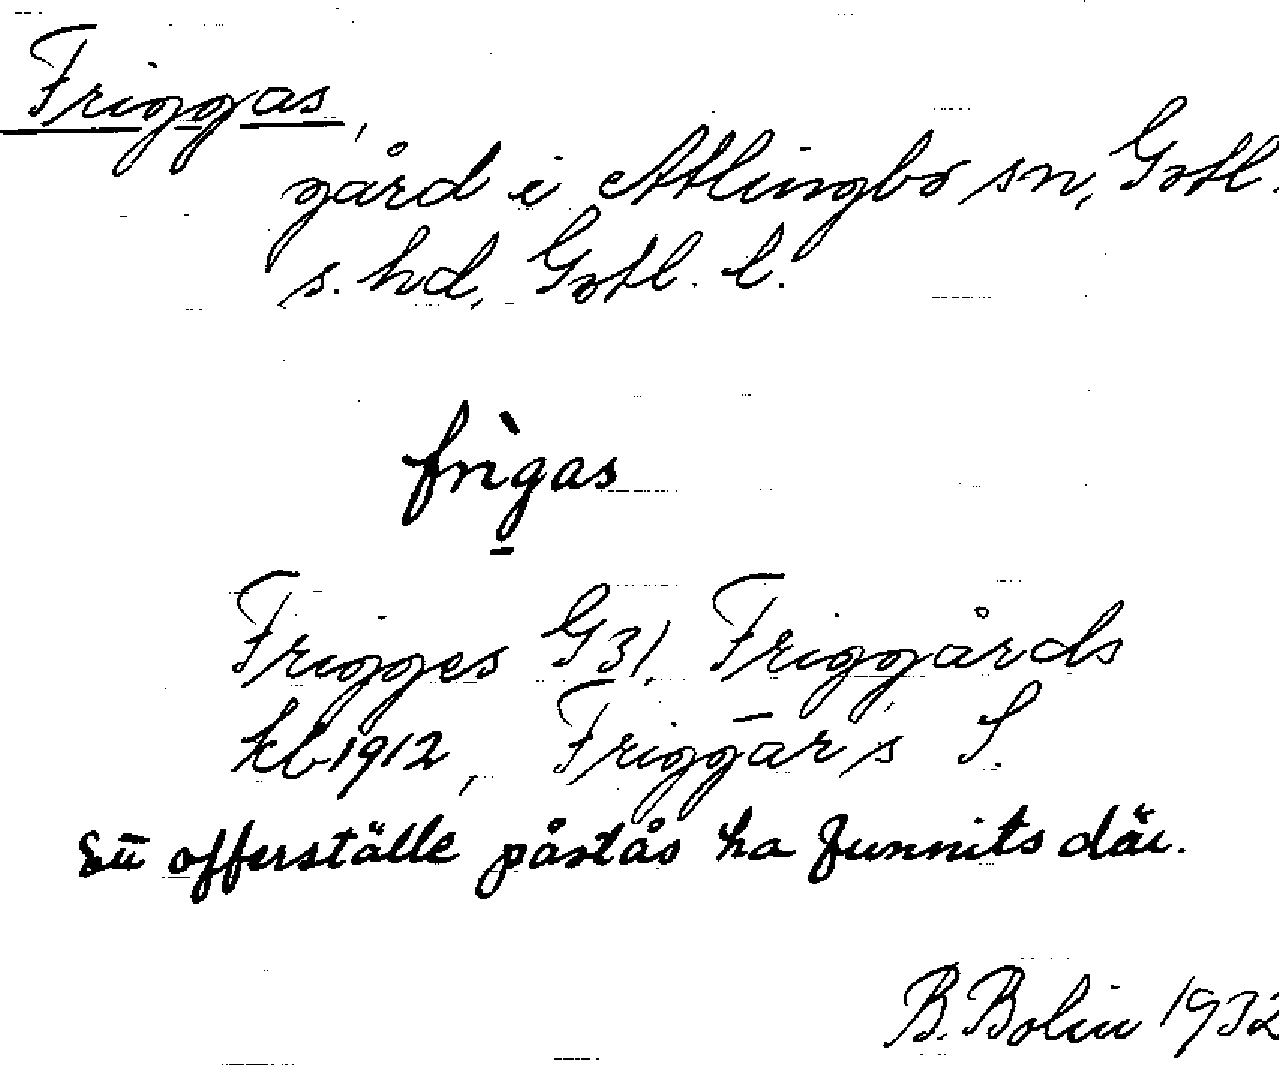 Friggas,
gård i Atlingbo sn, Gotl.
s. hd, Gotl. l.
frìgas
Frigges G31, Friggårds
kb1912, Friggar's S.
Ett offerställe påstås ha funnits där.
B. Bolin 1932